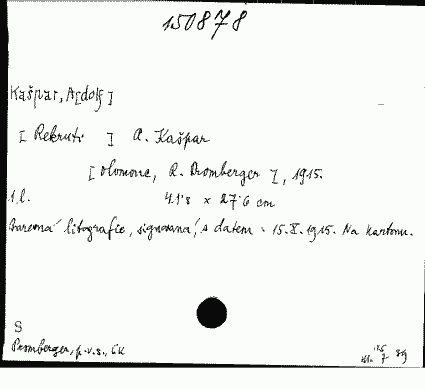 150878
Kašpar, A[dolf]
[Rekruti] A. Kašpar
[Olomouc, R. Promberger], 1915.
1 l. 41'8 x 27'6 cm
Barevná litografie, signovaná, s datem 15.X.1915. Na kartonu.
S
Promberger, p.v.s., čk
7 89